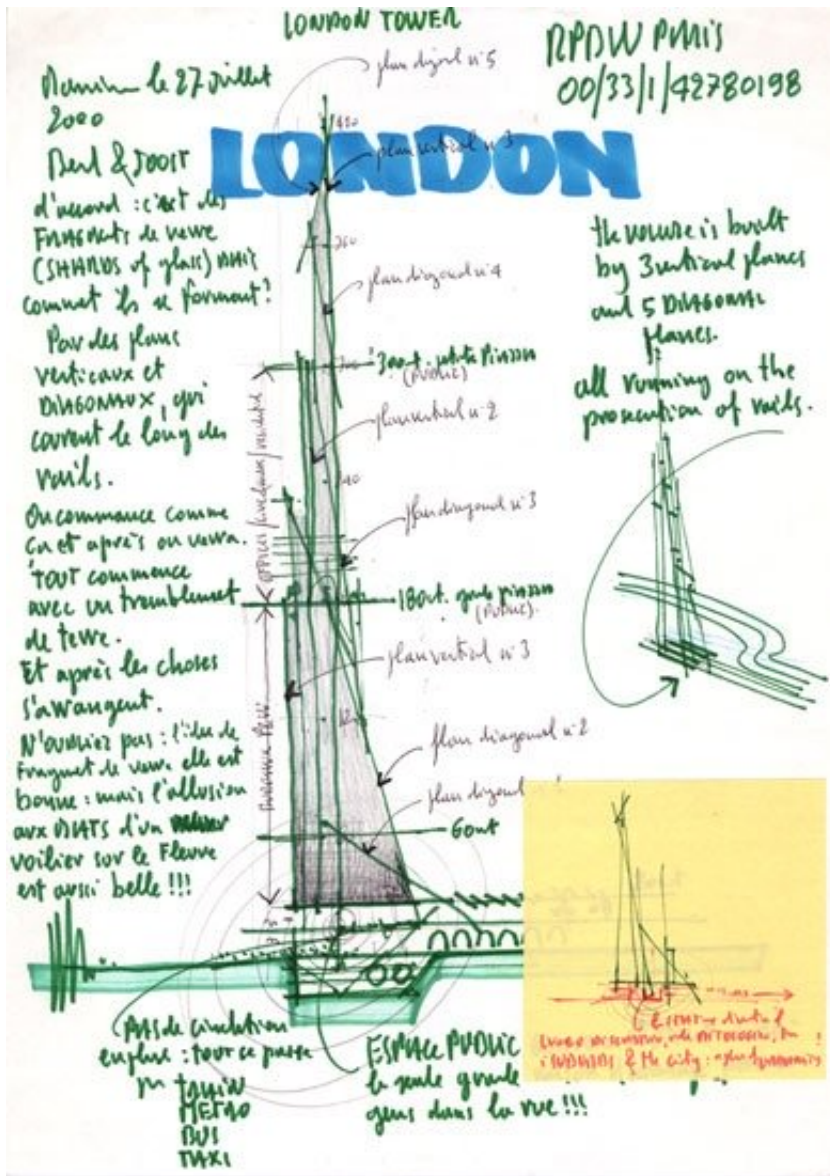 LONDON TOWER
RPBW PARIS
00/33/1/42780198
le 27 juillet
2000
LONDON
& JOOST
d'accord : c'est des
FRAGMENTS de verre
(SHARDS of glass) MAIS
comment ils se forment?
Par des plans
verticaux et
DIAGONAUX, qui
courent le long des
rails.
On commence comme
ça et après on verra.
TOUT commence
avec un tremblement
de terre.
Et après les choses
s'arrangent.
N'oubliez pas : l'idée de
fragment de verre elle est
bonne : mais l'allusion
aux MATS d'un
voilier sur le Fleuve
est aussi belle !!!
plan diagonal n°5
plan vertical n°3
260
plan diagonal n°4
(PUBLIC)
plan vertical n°2
plan diagonal n°3
(PUBLIC).
plan vertical n°3
plan diagonal n°2
plan diagonal
the volume is built
by 3 vertical planes
and 5 DIAGONAL
planes.
all running on the
prosecution of rails.
(PAS de circulation
en plus : tout se passe
TRAIN
METRO
BUS
TAXI
ESPACE PUBLIC
la seule grande
gens dans la rue !!!
& the city :